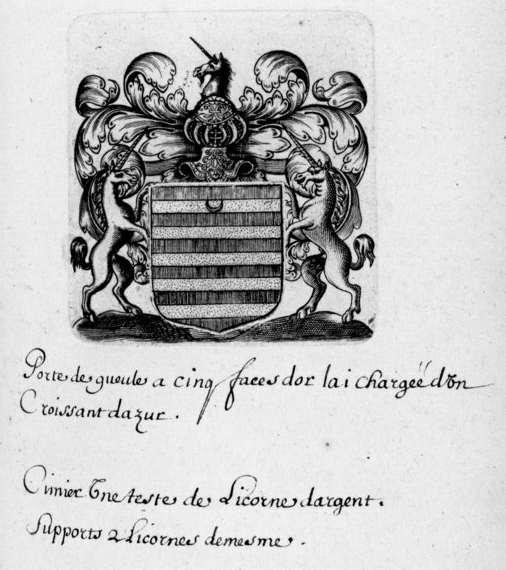 Porte de gueule a cinq faces dor la i chargeé d'un
Croissant dazur.
Cimier Une teste de Licorne dargent.
Supports 2 Licornes demesme.